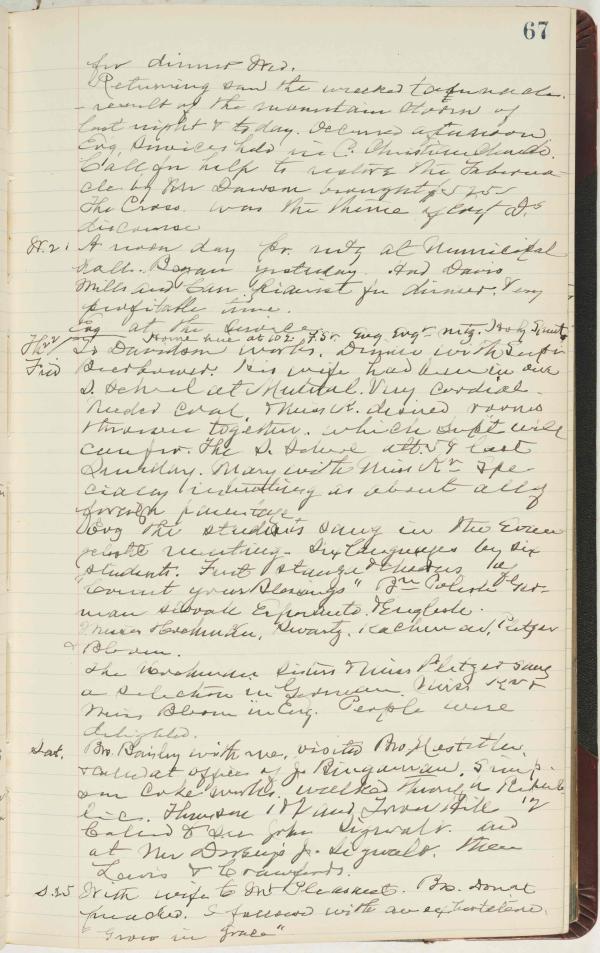 67
for dinner Wed.
Returning saw the wrecked tabernacle.
- result of the mountain storm of
last night & today. Occurred afternoon
Evg Services held in C. Christian Church.
Call for help to restore the Taberna-
cle by Rev Dawson brought $525
The Cross was the theme of
discourse
W.21 A noon day pr. mtg at Municipal
Hall. Began yesterday. Had Davis
Mills and pianist for dinner. Very
profitable time.
Evg at the service
Th 22 Home live at 102 Evg mtg.
Fri To Davidson works. Dinner with Supt
Beerbower. His wife had been in our
S. School at Mutual. Very cordial.
Needed coal, & Miss K. desired rooms
thrown together. which Supt will
confer. The S. School att. 59 last
Sunday. Mary with Miss K
cially interesting as about all of
foreign parentage
Evg the students sang in the Evan-
gelistic meeting. Six languages by six
students. First stanza & chorus of
"Count your Blessings" Bn Polish Ger-
man Slovak Esperanto & English.
Misses Hochman, Swartz, Kachur
& Bloom.
The Hochman Sisters & Miss Pletzer sang
a selection in German. Miss K &
Miss Bloom in Eng. People were
delighted.
Sat. Bro. Bailey with me, visited Bro.
& called at office of J. Bingaman, Simp-
son Coke works. walked through Repub-
lic. Thompson 1 & 2 and Tower Hill 1 & 2
Called to see John Sigwalt. and
at J. Sigwalt. then
Lewis & Crawfords.
S.25 With wife to Mt Pleasant. Bro. Donat
preached. I followed with an exhortation.
"Grow in Grace"